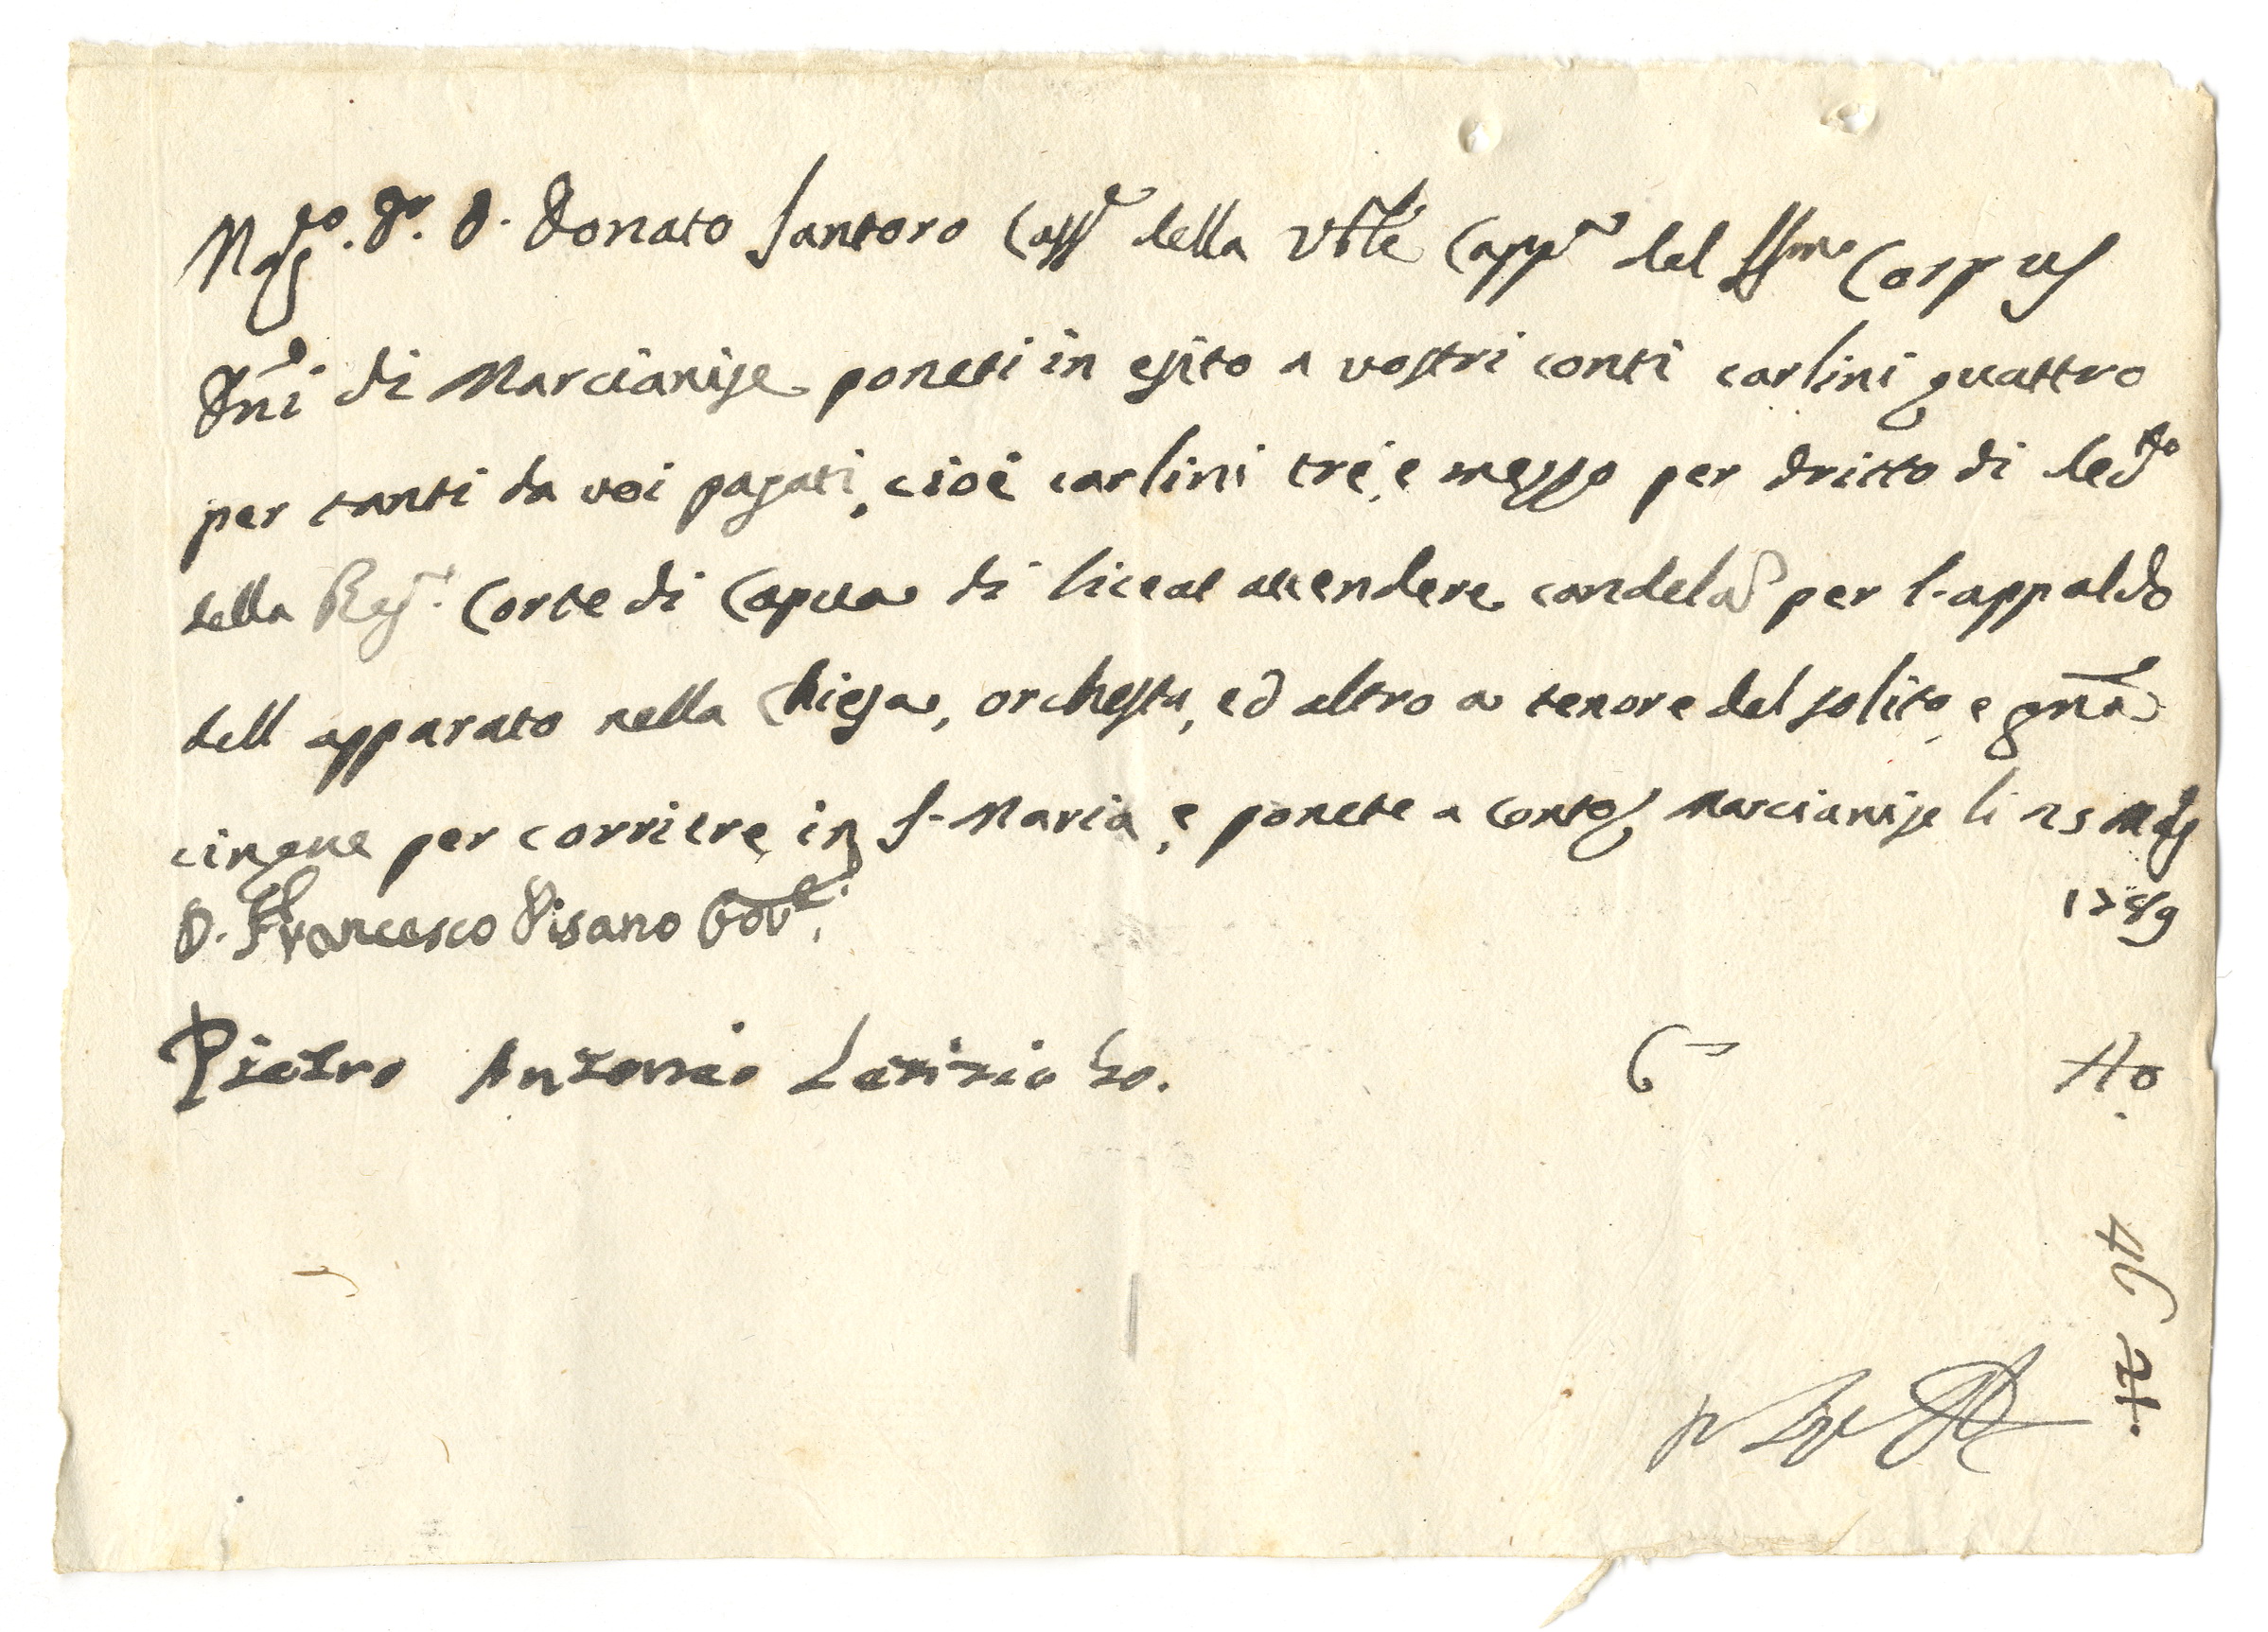 Mag.co Dr. D. Donato Santoro Cass.re della Vble Capp.a del SSmo Corpus
Dni di Marcianise poneti in esito a vostri conti carlini quattro
per tanti da voi pagati, cioè carlini tre, e mezzo per dritto di
della Reg.a Corte di Capua di liceat accendere candela per l'appaldo
dell apparato nella Chiesa, orchesta, ed altro a tenore del solito, e gna
cinque per corriere in S. Maria, e ponete a conto Marcianise li 25 Mag
1789
D. Francesco Pisano Gov.e
Pietro Antonio Letizia
46